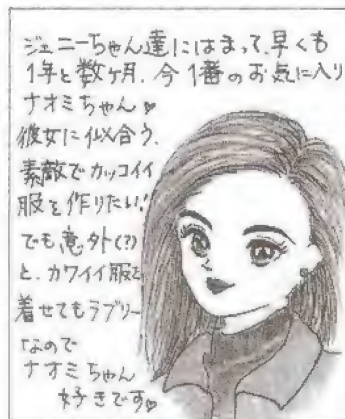 ジェニーちゃん達にはまって、早くも
1年と数ヶ月、今1番のお気に入り
ナオミちゃん♥
彼女に似合う、
素敵でカッコイイ
服を作りたい!
でも意外(?)
と、カワイイ服を
着せてもラブリー
なので
ナオミちゃん
好きです♥